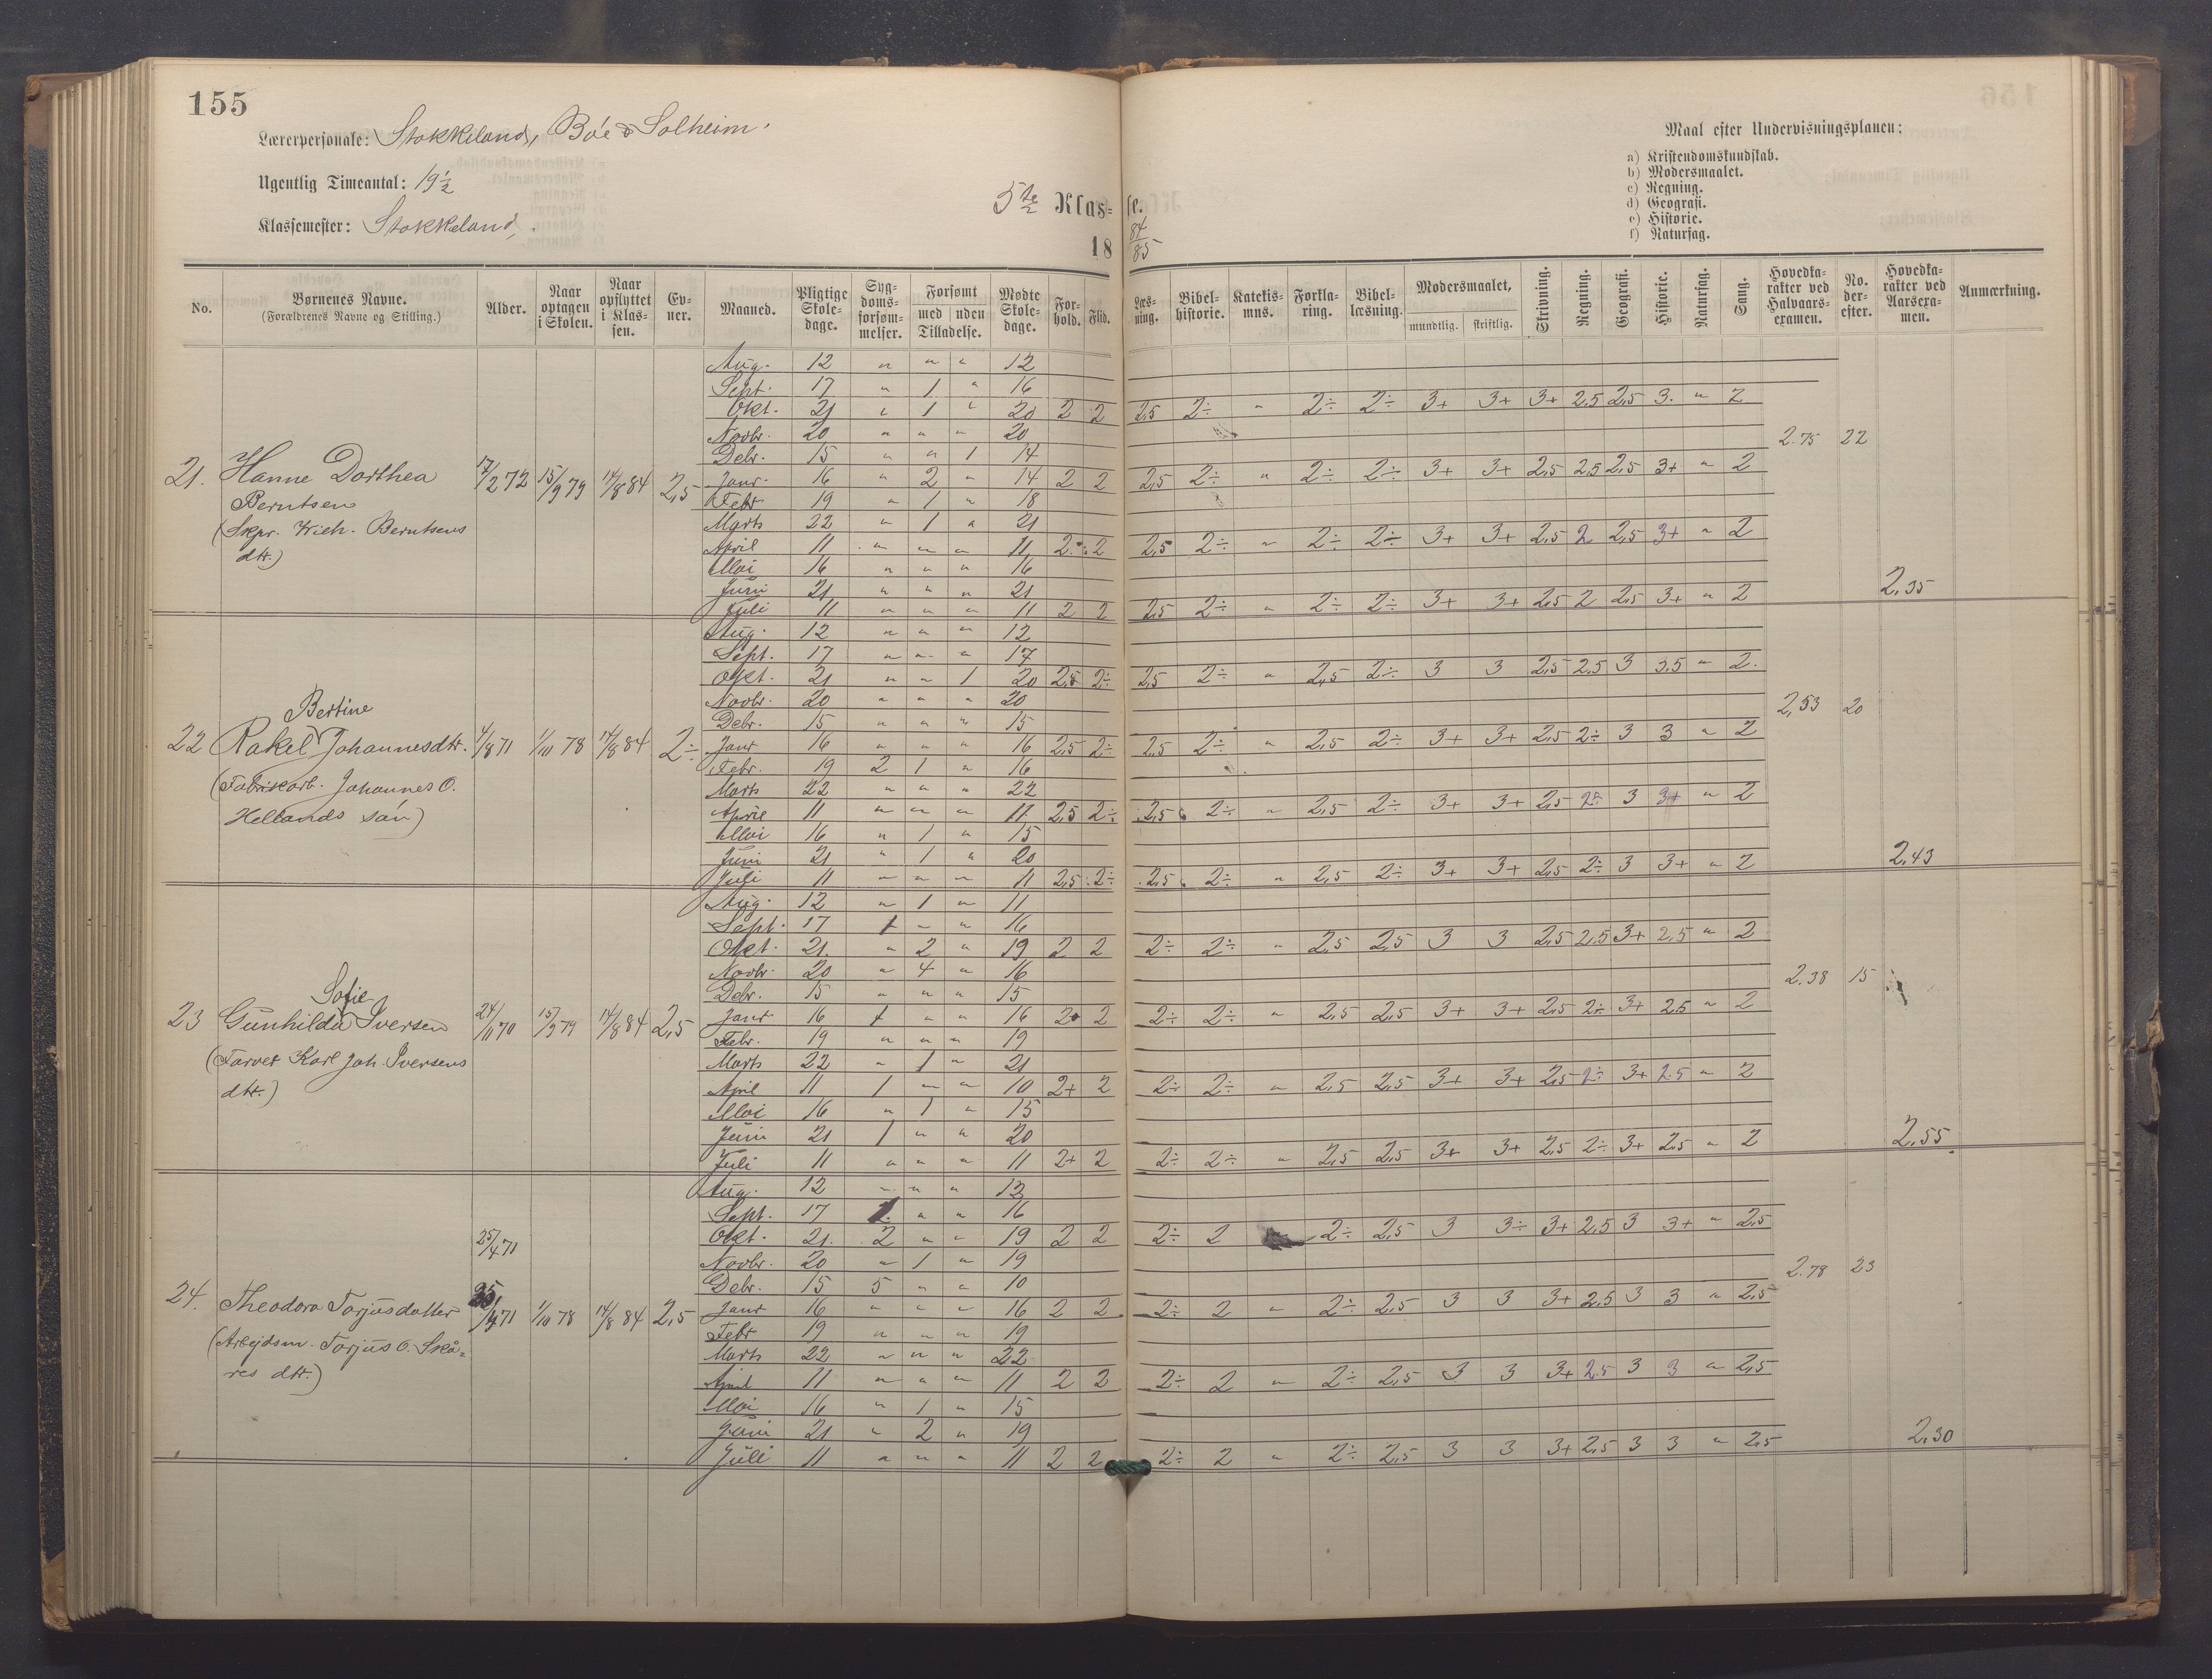 155
Lærerpersonale: Stokkeland, Bøe & Solheim.
Ugentlig Timeantal: 19½
Klassemester: Stokkeland,
5te Klasse.
18 84/85
Maal efter Undervisningsplanen:
a) Kristendomskundskab.
b) Modersmaalet.
c) Regning.
d) Geografi.
e) Historie.
f) Naturfag.
No. Børnenes Navne. (Forældrenes Navne og Stilling.) Alder. Naar optagen i Skolen. Naar opflyttet i Klassen. Evner. Maaned. Pligtige Skoledage. Sygdomsforsømmelser. Forsømt med uden Tilladelse. Mødte Skoledage. Forhold. Flid. Læsning. Bibelhistorie. Katekismus. Forklaring. Bibellæsning. Modersmaalet, mundtlig. skriftlig. Skrivning. Regning. Geografi. Historie. Naturfag. Sang. Hovedkarakter ved Halvaarsexamen. No. derefter. Hovedkarakter ved Aarsexamen. Anmærkning.
21. Hanne Dorthea Berntsen
(Skpr. Wich. Berntsens dtr.)
17/2 72 15/9 79 14/8 84 2,5
Aug. 12 " " " 12
Sept. 17 " 1 " 16
Okt. 21 " 1 " 20 2 2 2,5 2÷ " 2÷ 2÷ 3+ 3+ 3+ 2,5 2,5 3. " 2
Novbr. 20 " " " 20
2.75 22
Debr. 15 " " 1 14
Janr. 16 " 2 " 14 2 2 2,5 2÷ " 2÷ 2÷ 3+ 3+ 2,5 2,5 2,5 3+ " 2
Febr 19 " 1 " 18
Marts 22 " 1 " 21
April 11 " " " 11 2 2 2,5 2÷ " 2÷ 2÷ 3+ 3+ 2,5 2 2,5 3+ " 2
Mai 16 " " " 16
Juni 21 " " " 21
2,35
Juli 11 " " " 11 2 2 2,5 2÷ " 2÷ 2÷ 3+ 3+ 2,5 2 2,5 3+ " 2
22 Rakel Bertine Johannesdtr.
(Fabrikarb. Johannes O. Hellands)
4/8 71 1/10 78 14/8 84 2÷
Aug. 12 " " " 12
Sept. 17 " " " 17
Okt. 21 " " 1 20 2,5 2÷ 2,5 2÷ " 2,5 2÷ 3 3 2,5 2,5 3 3,5 " 2.
Novbr. 20 " " " 20
2,53 20
Debr. 15 " " " 15
Janr 16 " " " 16 2,5 2÷ 2,5 2÷ " 2,5 2÷ 3+ 3+ 2,5 2÷ 3 3 " 2
Febr. 19 2 1 " 16
Marts 22 " " " 22
April 11 " " " 11 2,5 2÷ 2,5 2÷ " 2,5 2÷ 3+ 3+ 2,5 2÷ 3 3+ " 2
Mai 16 " 1 " 15
Juni 21 " 1 " 20
2,43
Juli 11 " " " 11 2,5 2÷ 2,5 2÷ " 2,5 2÷ 3+ 3+ 2,5 2÷ 3 3+ " 2
23 Gunhilda Sofie Iversen
(Farver Karl Joh. Iversens dtr.)
24/11 70 15/9 79 14/8 84 2,5
Aug. 12 " 1 " 11
Sept. 17 1 " " 16
Okt. 21. " 2 " 19 2 2 2÷ 2÷ " 2,5 2,5 3 3 2,5 2,5 3+ 2,5 " 2
Novbr. 20 " 4 " 16
2.38 15
Debr. 15 " " " 15
Janr 16 1 " " 16 2 2 2÷ 2÷ " 2,5 2,5 3+ 3+ 2,5 2÷ 3+ 2,5 " 2
Febr. 19 " " " 19
Marts 22 " 1 " 21
April 11 1 " " 10 2+ 2 2÷ 2÷ " 2,5 2,5 3+ 3+ 2,5 2÷ 3+ 2,5 " 2
Mai 16 " 1 " 15
Juni 21 1 " " 20
2,55
Juli 11 " " " 11 2+ 2 2÷ 2÷ " 2,5 2,5 3+ 3+ 2,5 2÷ 3+ 2,5 " 2
25/4 71
24. Theodora Torjusdatter
(Arbejdsm. Torjus O. Skåres dtr.)
71 1/10 78 14/8 84 2,5
Aug. 12 " " " 12
Sept. 17 1 " " 16
Okt. 21. 2 " " 19 2 2 2÷ 2 2÷ 2,5 3 3÷ 3+ 2,5 3 3+ " 2,5
Novbr. 20 " 1 " 19
2.78 23
Debr. 15 5 " " 10
Janr 16 " " " 16 2 2 2÷ 2 " 2÷ 2,5 3 3 3+ 2,5 3 3 " 2,5
Febr 19 " " " 19
Marts 22 " " " 22
April 11 " " " 11 2 2 2÷ 2 " 2÷ 2,5 3 3 3+ 2,5 3 3 " 2,5
Mai 16 " 1 " 15
Juni 21 " 2 " 19
2,30
Juli 11 " " " 11 2 2 2÷ 2 " 2÷ 2,5 3 3 3+ 2,5 3 3 " 2,5